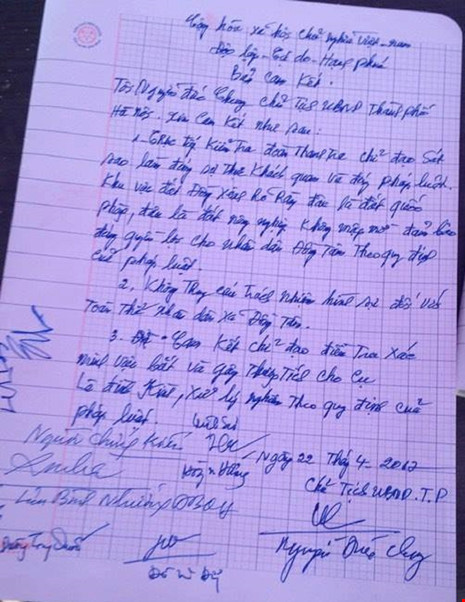 Cộng hòa xã hội chủ nghĩa việt nam
Độc lập - Tự do - Hạnh phúc
Bản Cam Kết.
Tôi Nguyễn Đức Chung chủ tịch UBND Thành phố
Hà Nội. xin Cam Kết như sau:
kiểm tra đoàn Thanh tra chỉ đạo Sát
sao làm đúng sự thật Khách quan và đúng pháp luật.
Khu vực đất Đồng Xênh Rõ Ràng đâu là đất quốc
phòng, đâu là đất nông nghiệp không mập mờ - đảm bảo
đúng quyền lợi cho nhân dân Đồng Tâm Theo quy định
của pháp luật.
2, Không Truy cứu trách nhiệm hình sự đối với
Toàn Thể nhân dân xã Đồng Tâm.
3. Cam Kết chỉ đạo điều Tra Xác
minh việc bắt và gây Thương Tích cho Cụ
Lê đình Kình, Xử lý nghiêm Theo quy định của
pháp luật.
Người chứng kiến
Ngày 22 Thg 4 - 2017
Chủ Tịch UBND.T.P
Lưu Bình Nhưỡng
Nguyễn Đức Chung